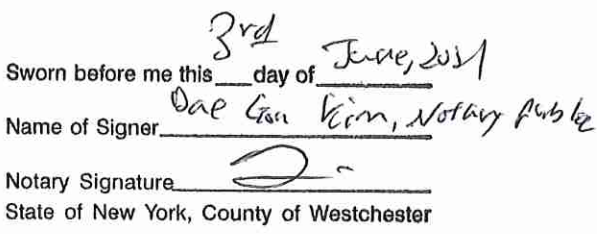 Sworn before me this 3rd day of June, 2021
Name of Signer Dae Kim, Notary Public
Notary Signature
State of New York, County of Westchester